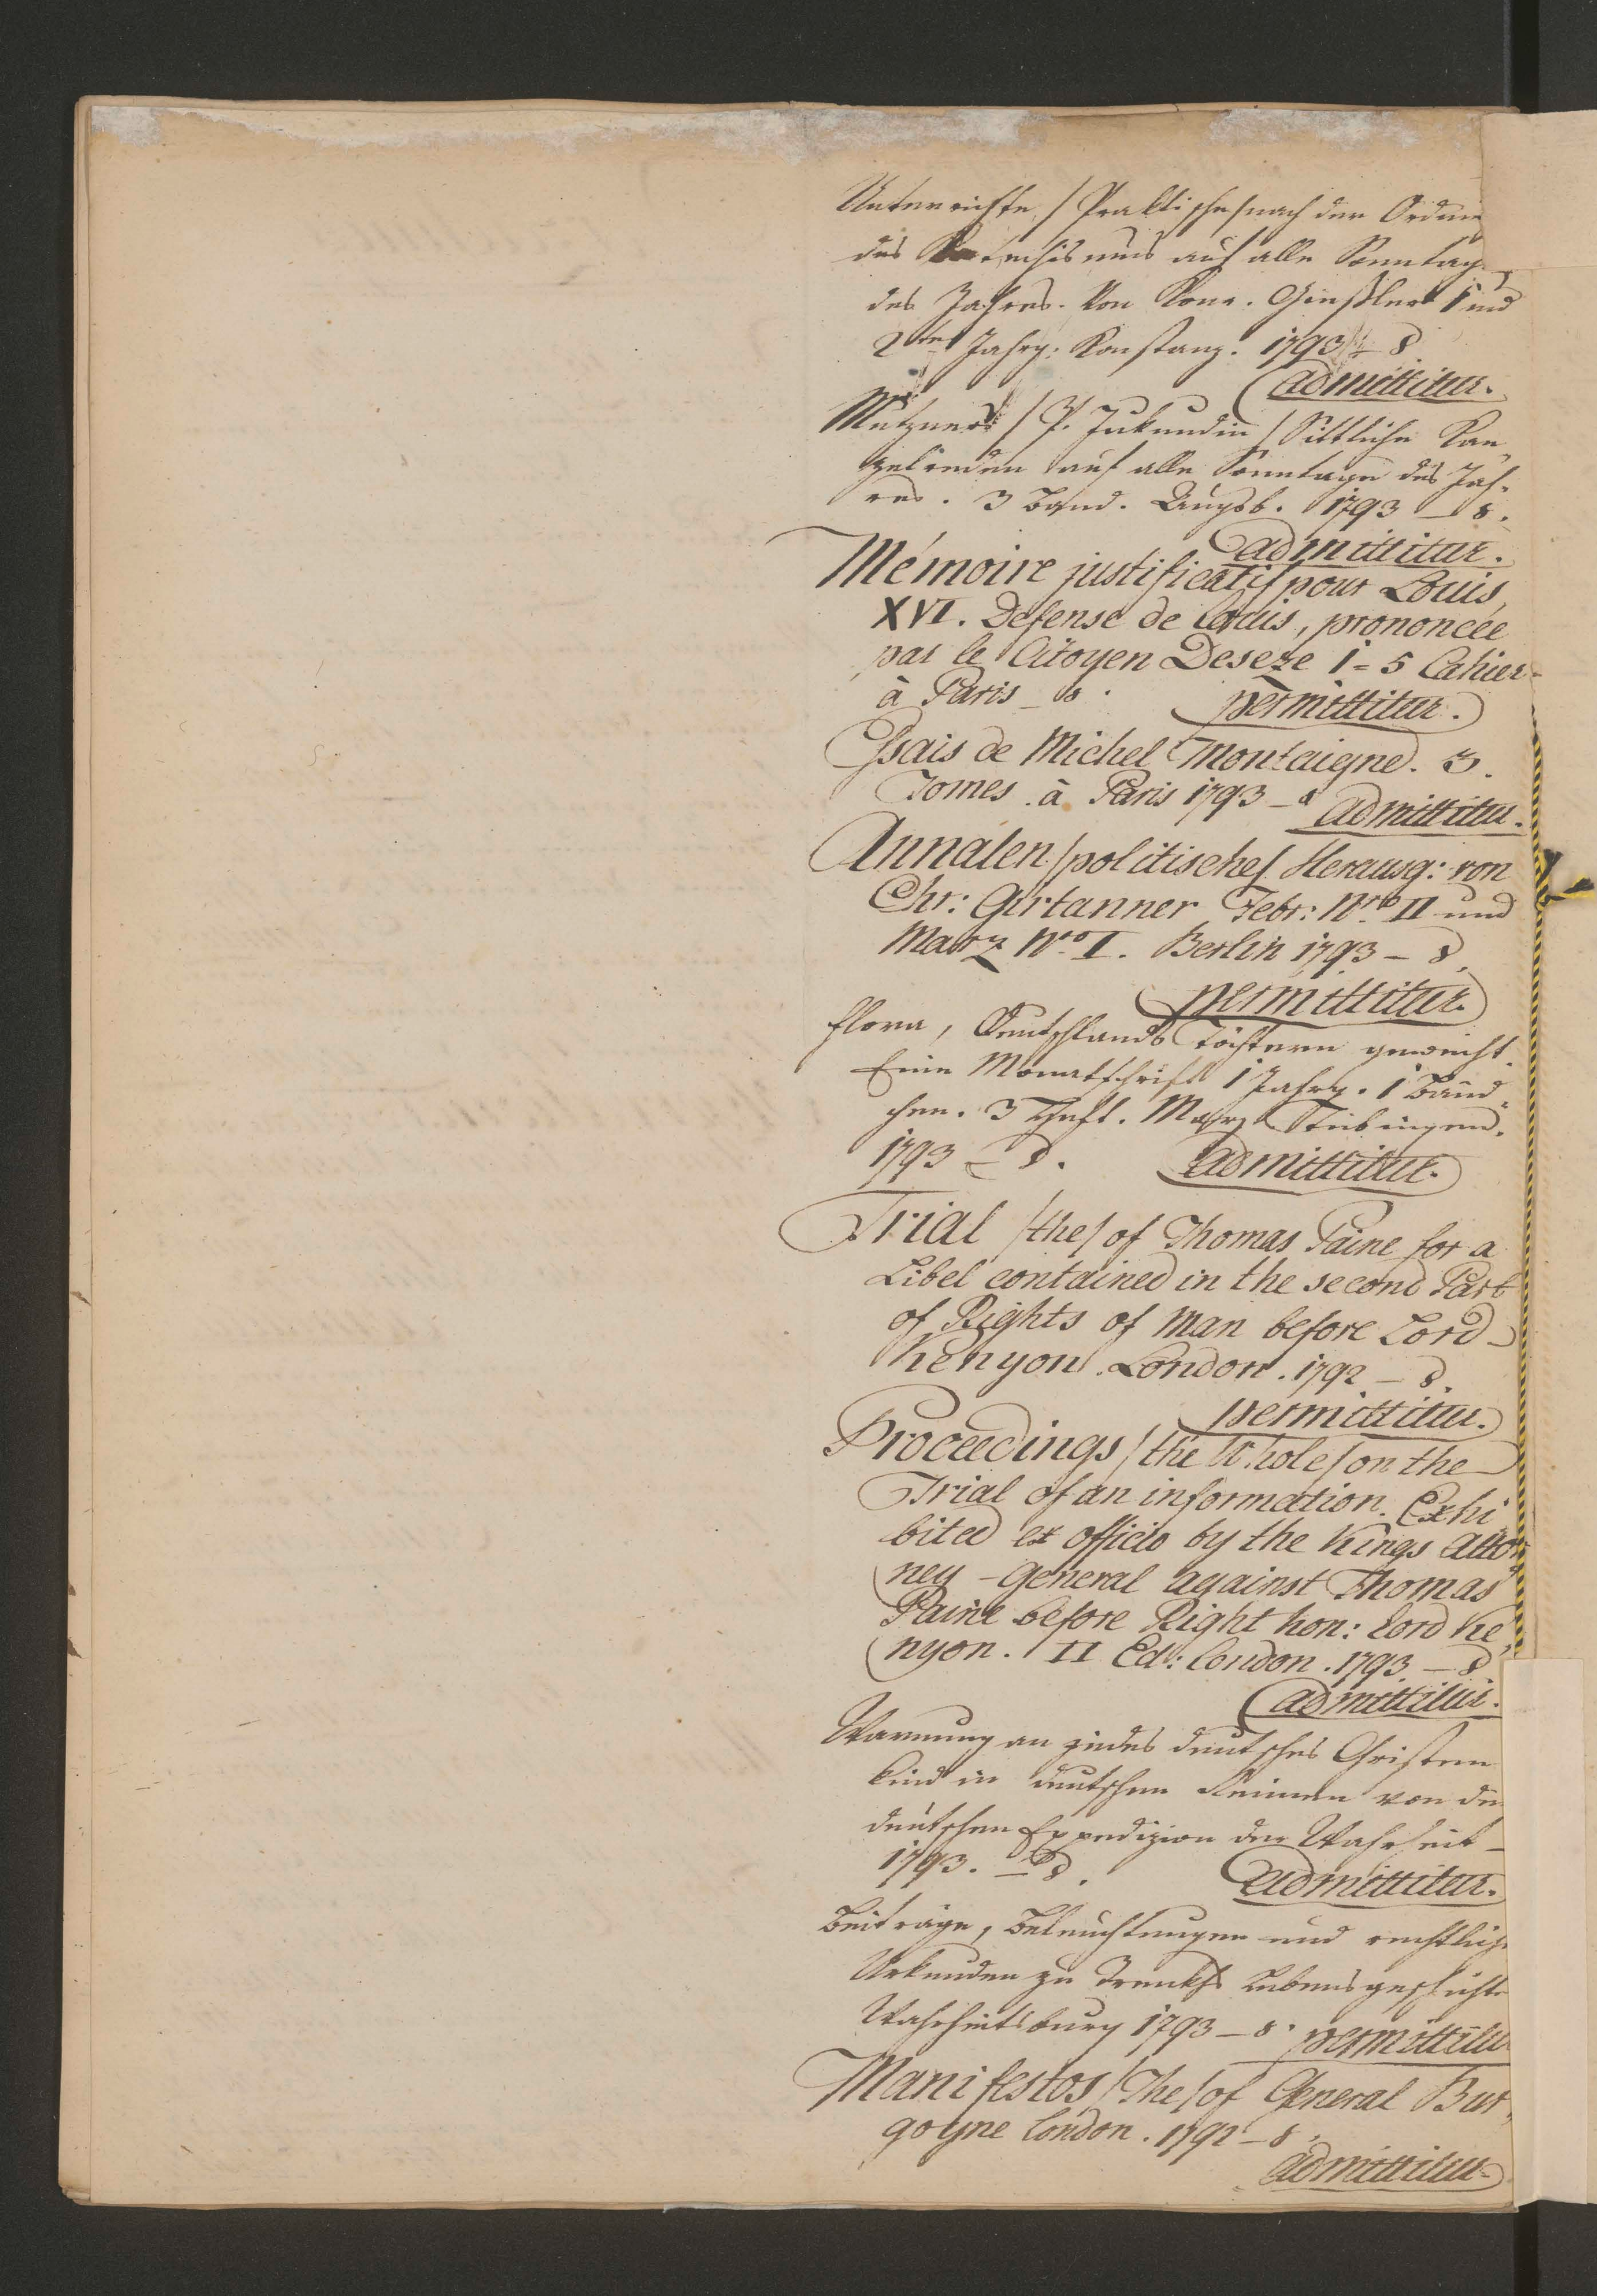 Unterrichte /Praktische/ nach der Ordnu
des Katechismus auf alle Sonntage
des Jahres. Von Konr. 1 und
2ten Jahrg: Konstanz. 1793 – 8
admittitur.
Metzners /P. Jukundin/ Sittliche Kan„
zelreden auf alle Sonntage des Jah„
res. 3 Band. Augsb. 1793 – 8.
admittitur.
Mémoire justificatif pour Louis
XVI. Defense de Louis, prononcée
par le Citoyen Deseze 1=5 Cahier
à Paris – 8. permittitur.
Essais de Michel Montaigne. 3.
Tomes. à Paris 1793 – 8 admittitur.
Annalen /politische/ Herausg: von
Chr: Girtanner Febr: Nro II und
März Nro I. Berlin 1793 – 8.
permittitur.
Flora, Deutschlands Töchtern geweiht.
Eine Monatschrift 1 Jahrg. 1 Bänd„
chen. 3 Heft. März Tübingen.
1793 – 8. admittitur.
Trial /the/ of Thomas Paine for a
Libel contained in the second Part
of Rights of Man before Lord
Kenyon. London. 1792 – 8.
permittitur.
Proceedings /the Whole/ on the
Trial of an information. Exhi
bited ex officio by the Kings Attor
ney – General against Thomas
Paine before Right hon: Lord Ke„
nyon. II Ed: London. 1793 – 8
admittitur.
Warnung an jedes deutsches Christen
kind in deutschen Reimen von der
deutschen Expedizion der Wahrheit –
1793. – 8. admittitur.
Beiträge, Beleuchtungen und rechtliche
Urkunden zu Trenks Lebensgeschichte
Wahrheitsburg 1793 – 8. permittitur
Manifestos /The/ of General Bur„
goyne London. 1792 – 8.
admittitur